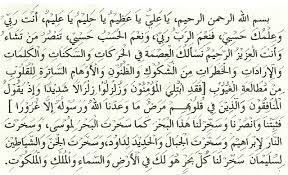 بسم الله الرحمن الرحيم، يَا عَلِيُّ يَا عَظِيمُ يَا حَلِيمُ يَا عَلِيمُ، أَنْتَ رَبِّي
وَعِلْمُكَ حَسْبِي، فَنِعْمَ الرَّبُّ رَبِّي، وَنِعْمَ الْحَسْبُ حَسْبِي، تَنْصُرُ مَنْ تَشَاءُ
وَأَنْتَ الْعَزِيزُ الرَّحِيمُ نَسْأَلُكَ الْعِصْمَةَ فِي الْحَرَكَاتِ وَالسَّكَنَاتِ وَالْكَلِمَاتِ
وَالْإِرَادَاتِ وَالْخَطَرَاتِ مِنَ الشُّكُوكِ وَالظُّنُونِ وَالْأَوْهَامِ السَّاتِرَةِ لِلْقُلُوبِ
عَنْ مُطَالَعَةِ الْغُيُوبِ [فَقَدِ ابْتُلِيَ الْمُؤْمِنُونَ وَزُلْزِلُوا زِلْزَالًا شَدِيدًا وَإِذْ يَقُولُ
الْمُنَافِقُونَ وَالَّذِينَ فِي قُلُوبِهِمْ مَرَضٌ مَا وَعَدَنَا اللَّهُ وَرَسُولُهُ إِلَّا غُرُورًا]
فَثَبِّتْنَا وَانْصُرْنَا وَسَخِّرْ لَنَا هَذَا الْبَحْرَ كَمَا سَخَّرْتَ الْبَحْرَ لِمُوسَى، وَسَخَّرْتَ
النَّارَ لِإِبْرَاهِيمَ وَسَخَّرْتَ الْجِبَالَ وَالْحَدِيدَ لِدَاوُدَ، وَسَخَّرْتَ الرِّيحَ وَالْجِنَّ وَالشَّيَاطِينَ
لِسُلَيْمَانَ سَخِّرْ لَنَا كُلَّ بَحْرٍ هُوَ لَكَ فِي الْأَرْضِ وَالسَّمَاءِ وَالْمُلْكِ وَالْمَلَكُوتِ.